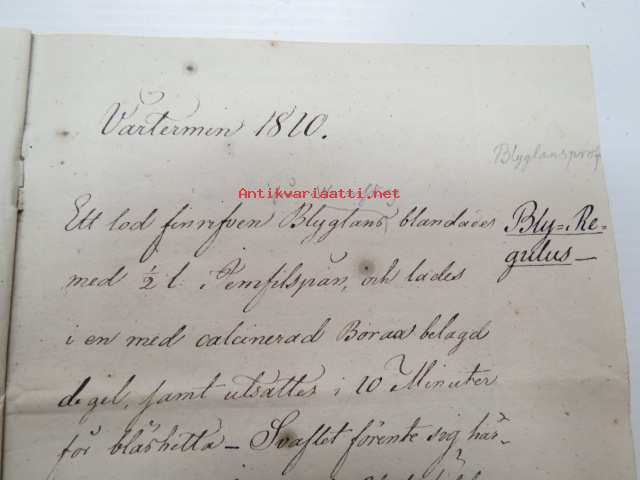 Vårtermin 1810.
Blyglansprof
Antikvariaatti.net
Ett lod finrifven Blyglans blandades
Bly=Re-
gulus—
med ½ l. Jernfilspån, och lades
i en med calcinerad Borax belagd
degel, samt utsattes i 10 Minuter
för bläshetta — Svaflet förente sig här-